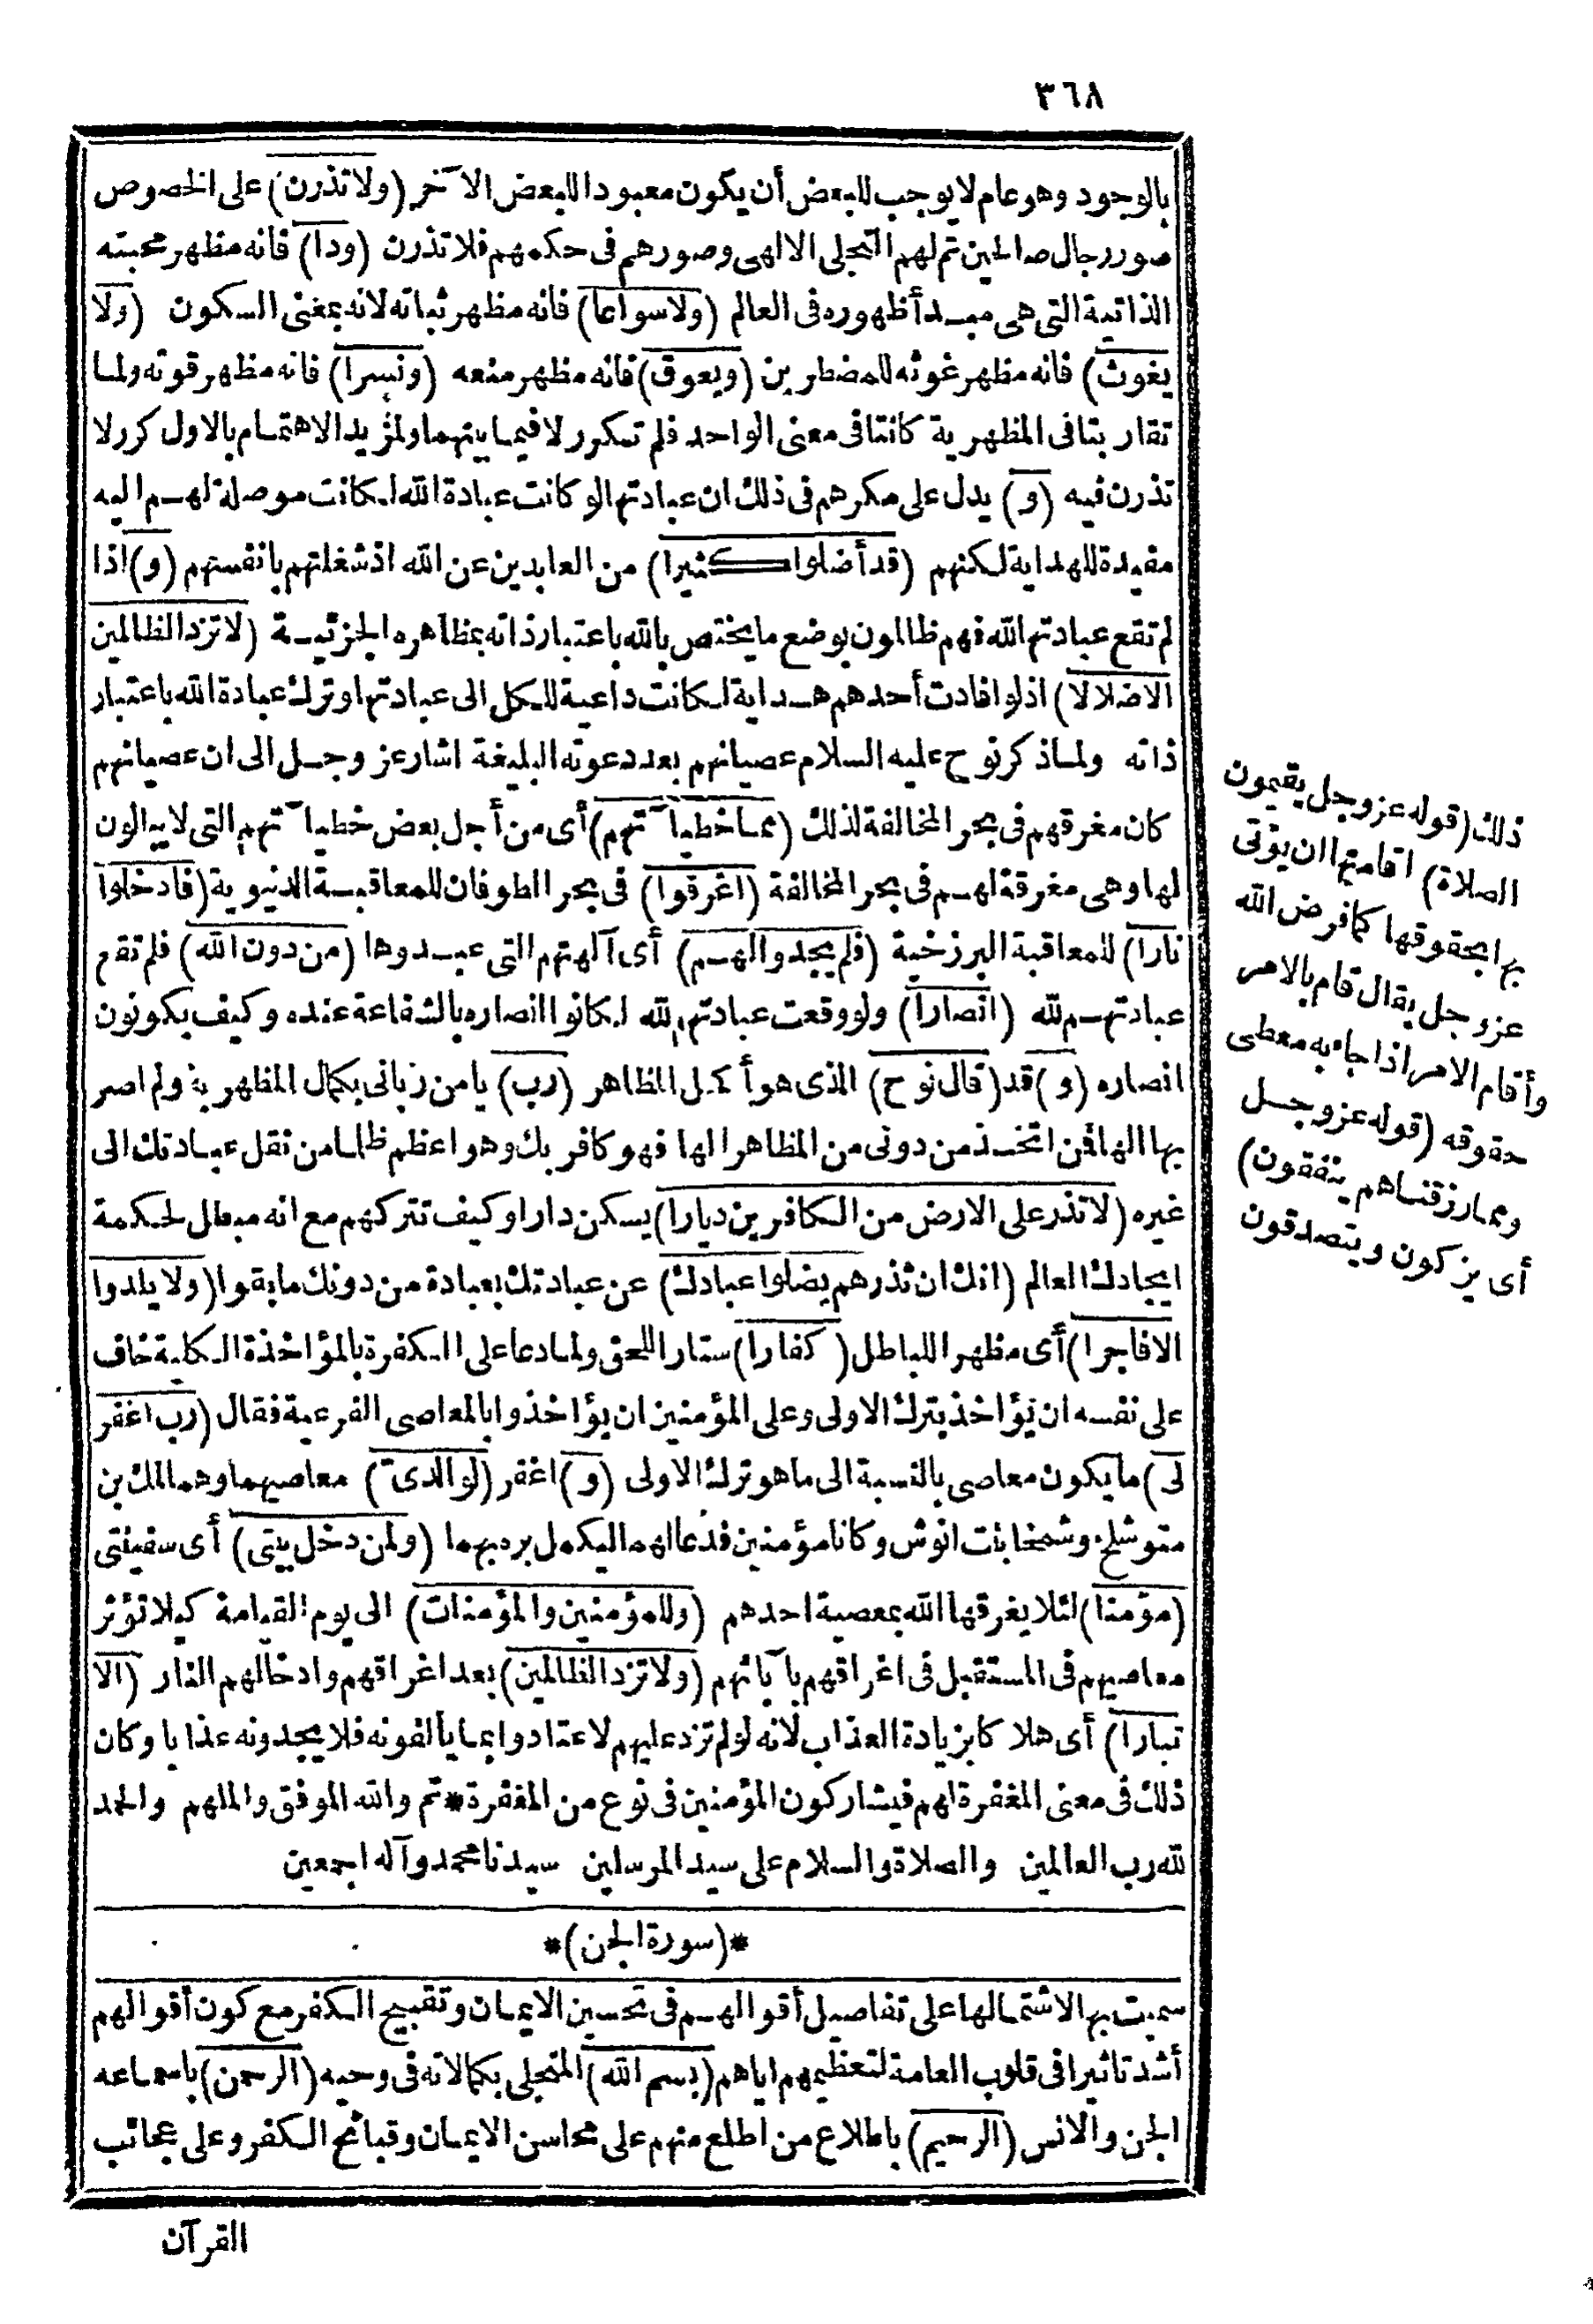 ٣٦٨
بالوجود وهو عام لا يوجب للبعض أن يكون معبودا للبعض الآخر (ولا تذرن) على الخصوص
صور رجال صالحين تم لهم التجلى الالهى وصورهم فى حكمهم فلا تذرن (ودا) فانه مظهر محبته
الذاتية التى هى مبدأ ظهوره فى العالم (ولا سواعا) فانه مظهر ثباته لانه بمعنى السكون (ولا
يغوث) فانه مظهر غوثه للمضطرين (ويعوق) فانه مظهر منعه (ونسرا) فانه مظهر قوته ولما
تقاربتا فى المظهرية كانتا فى معنى الواحد فلم تكرر لا فيما بينهما ولمزيد الاهتمام بالاول كرر لا
تذرن فيه (و) يدل على مكرهم فى ذلك ان عبادتها لو كانت عبادة الله لكانت موصلة لهم اليه
مفيدة للهداية لكنهم (قد أضلوا كثيرا) من العابدين عن الله اذ شغلتهم بانفسهم (و) اذا
لم تقع عبادتهم الله فهم ظالمون بوضع ما يختص بالله باعتبار ذاته بمظاهره الجزئية (لا تزد الظالمين
الا ضلالا) اذ لو افادت أحدهم هداية لكانت داعية للكل الى عبادتها وترك عبادة الله باعتبار
ذاته ولما ذكر نوح عليه السلام عصيانهم بعد دعوته البليغة اشار عز وجل الى ان عصيانهم
كان مغرقهم فى بحر المخالفة لذلك (مما خطيآتهم) أى من أجل بعض خطيآتهم التى لا يبالون
لها وهى مغرقة لهم فى بحر المخالفة (اغرقوا) فى بحر الطوفان للمعاقبة الدنيوية (فادخلوا
نارا) للمعاقبة البرزخية (فلم يجدوا لهم) أى آلهتهم التى عبدوها (من دون الله) فلم تقم
عبادتهم لله (انصارا) ولو وقعت عبادتهم لله لكانوا انصاره بالشفاعة عنده وكيف يكونون
انصاره (و) قد (قال نوح) الذى هو أكمل المظاهر (رب) يا من ربانى بكمال المظهرية ولم اصر
بها الها فمن اتخذ من دونى من المظاهر الها فهو كافر بك وهو اعظم ظلما من نقل عبادتك الى
غيره (لا تذر على الارض من الكافرين ديارا) يسكن دارا وكيف تتركهم مع انه مبطل لحكمة
ايجادك العالم (انك ان تذرهم يضلوا عبادك) عن عبادتك بعبادة من دونك ما بقوا (ولا يلدوا
الا فاجرا) أى مظهرا للباطل (كفارا) ستارا للحق ولما دعا على الكفرة بالمؤاخذة الكلية خاف
على نفسه ان يؤاخذ بترك الاولى وعلى المؤمنين ان يؤاخذوا بالمعاصى الفرعية فقال (رب اغفر
لى) ما يكون معاصى بالنسبة الى ما هو ترك الاولى (و) اغفر (لوالدىّ) معاصيهما وهما لمك بن
متوشلخ وشمخا بنت انوش وكانا مؤمنين فدعا لهما ليكمل بره بهما (ولمن دخل بيتى) أى سفينتى
(مؤمنا) لئلا يغرقها الله بمعصية احدهم (وللمؤمنين والمؤمنات) الى يوم القيامة كيلا تؤثر
معاصيهم فى المستقبل فى اغراقهم بآبائهم (ولا تزد الظالمين) بعد اغراقهم وادخالهم النار (الا
تبارا) أى هلاكا بزيادة العذاب لانه لو لم تزد عليهم لاعتادوا بما يألفونه فلا يجدونه عذابا وكان
ذلك فى معنى المغفرة لهم فيشاركون المؤمنين فى نوع من المغفرة * تم والله الموفق والملهم والحمد
لله رب العالمين والصلاة والسلام على سيد المرسلين سيدنا محمد وآله اجمعين
*(سورة الجن)*
سميت بها لاشتمالها على تفاصيل أقوالهم فى تحسين الايمان وتقبيح الكفر مع كون أقوالهم
أشد تاثيرا فى قلوب العامة لتعظيمهم اياهم (بسم الله) المتجلى بكمالاته فى وحيه (الرحمن) باسماعه
الجن والانس (الرحيم) باطلاع من اطلع منهم على محاسن الايمان وقبائح الكفر وعلى عجائب
القرآن
ذلك (قوله عز وجل يقيمون
الصلاة) اقامتها ان يؤتى
بها بحقوقها كما فرض الله
عز وجل يقال قام بالامر
وأقام الامر اذا جاء به معطى
حقوقه (قوله عز وجل
ومما رزقناهم ينفقون)
أى يزكون ويتصدقون